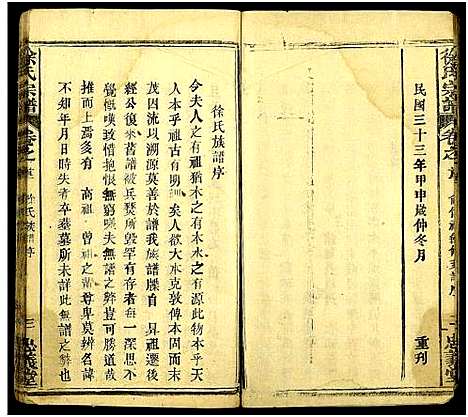 徐氏宗譜
忠義堂
民國三十三年甲申歲仲冬月
重刊
徐氏族譜序
今夫人之有祖猶木之有本水之有源此物本乎天
人本乎祖古有明訓矣人欲大水克敦俾本固枝
茂因流以溯源莫善於譜我族譜牒自昇祖諱
經公復來舊被兵焚所毀罕有存者每一深思不
覺慨嘆致惜抱恨無窮嗟夫無譜之弊豈可勝言
推而上焉多有高祖曾祖之尊卑莫辨名諱
不知年月日時失考卒塟墓所未詳此無譜之弊
徐氏宗譜
卷之首
徐氏族譜序
三
忠義堂